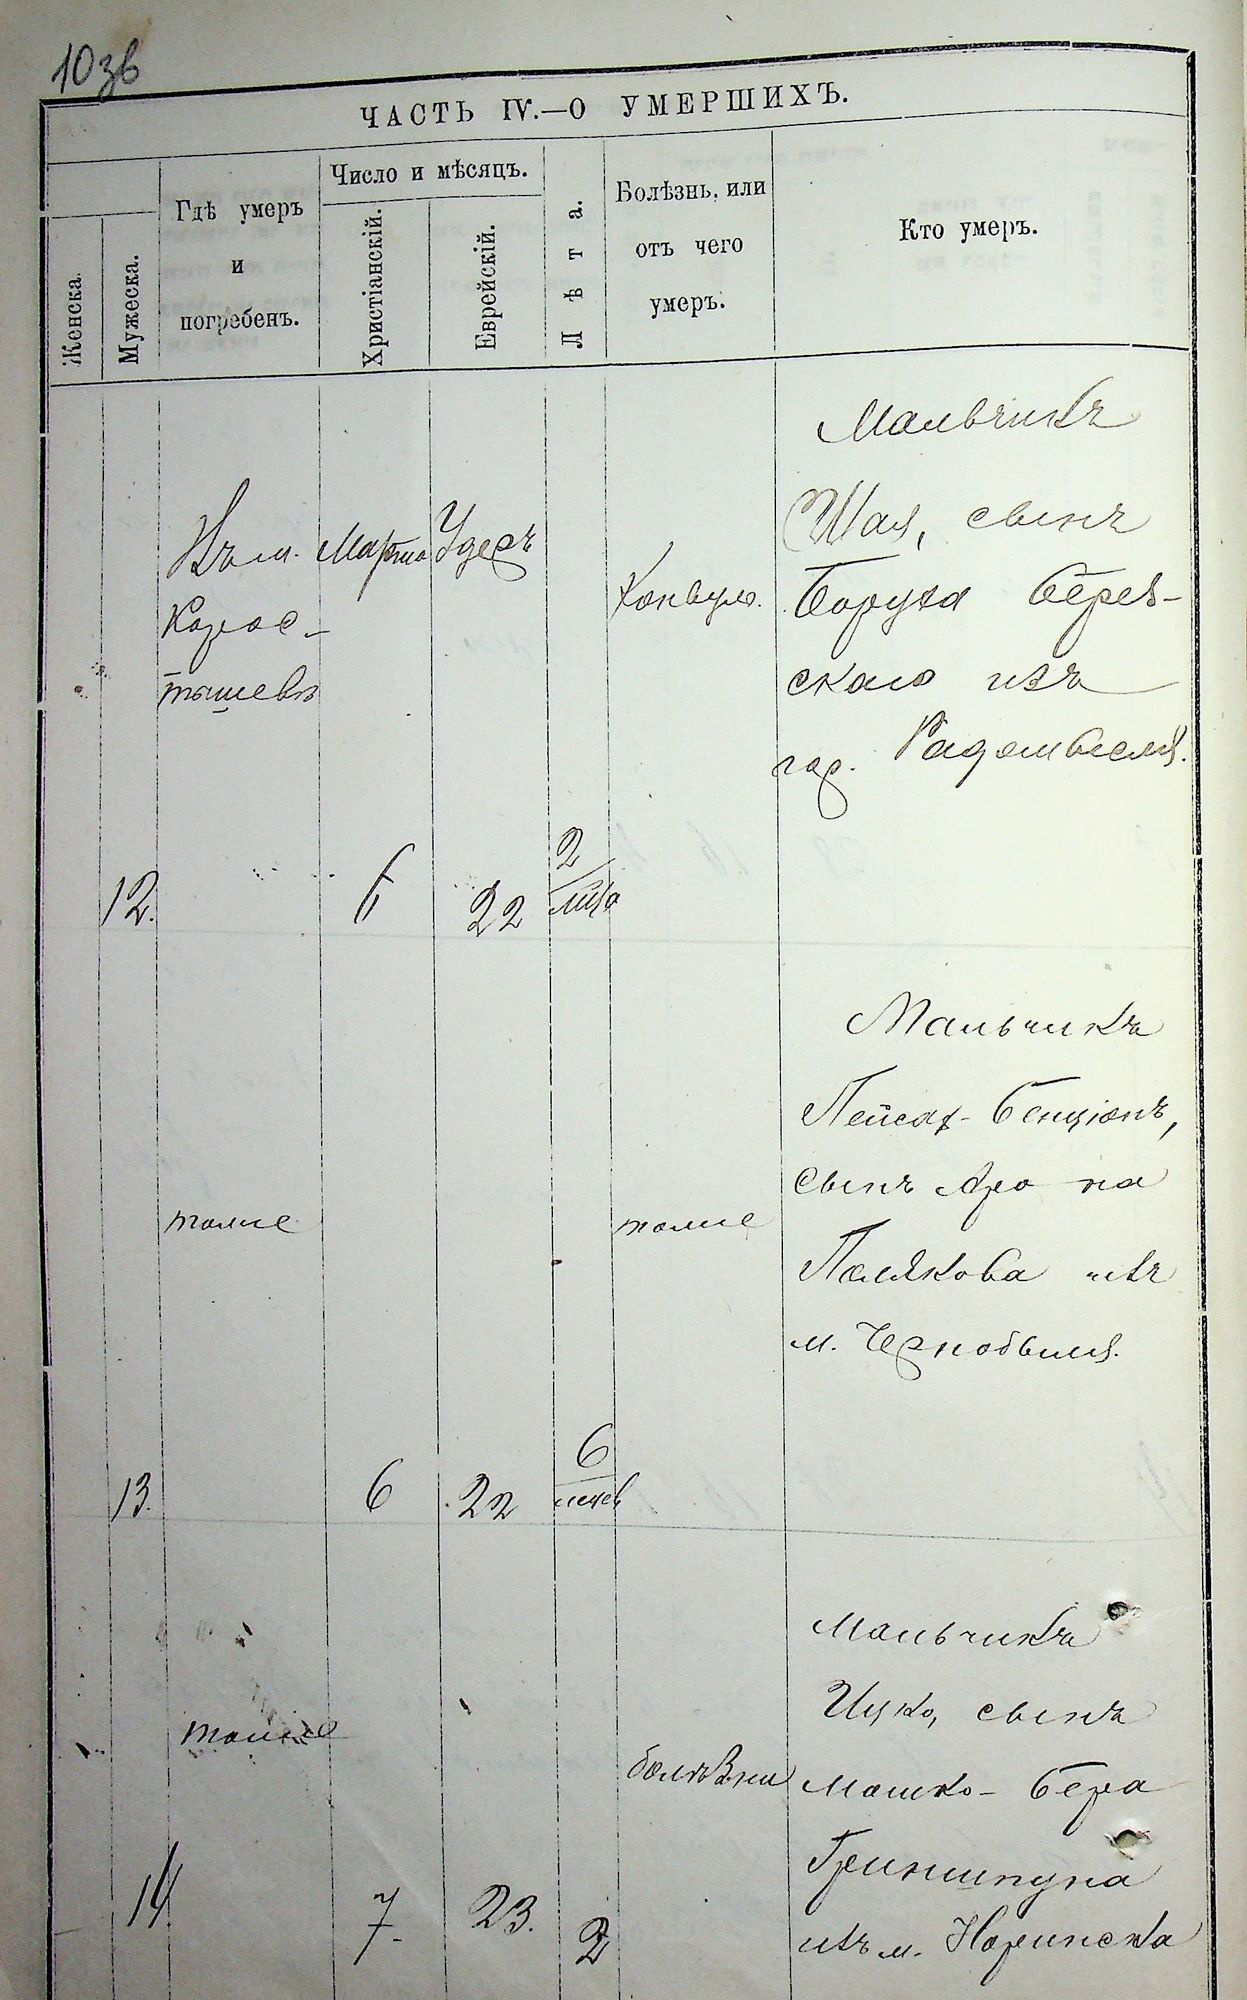 10зв
ЧАСТЬ IV.—О УМЕРШИХЪ.
Женска.
Мужеска.
Гдѣ умеръ
и
погребенъ.
Число и мѣсяцъ.
Христіанскій.
Еврейскій.
Лѣта.
Болѣзнь, или
отъ чего
умеръ.
Кто умеръ.
Мальчикъ
Шая, сынъ
Въ м. Марта Удеръ
Конвул. Боруха Берев-
Корос-
скаго изъ
тышевѣ
гор. Радомысля.
12. 6 22 2
Мальчикъ
Пейсах-Бенціонъ,
сынъ Арона
тоже тоже
Полякова изъ
м. Чернобыля.
13. 6 22 6
Мальчикъ
Ицко, сынъ
тоже
болѣзни Мошко-Бера
Гриншпуна
14. 7. 23. 2
изъ м. Норинска